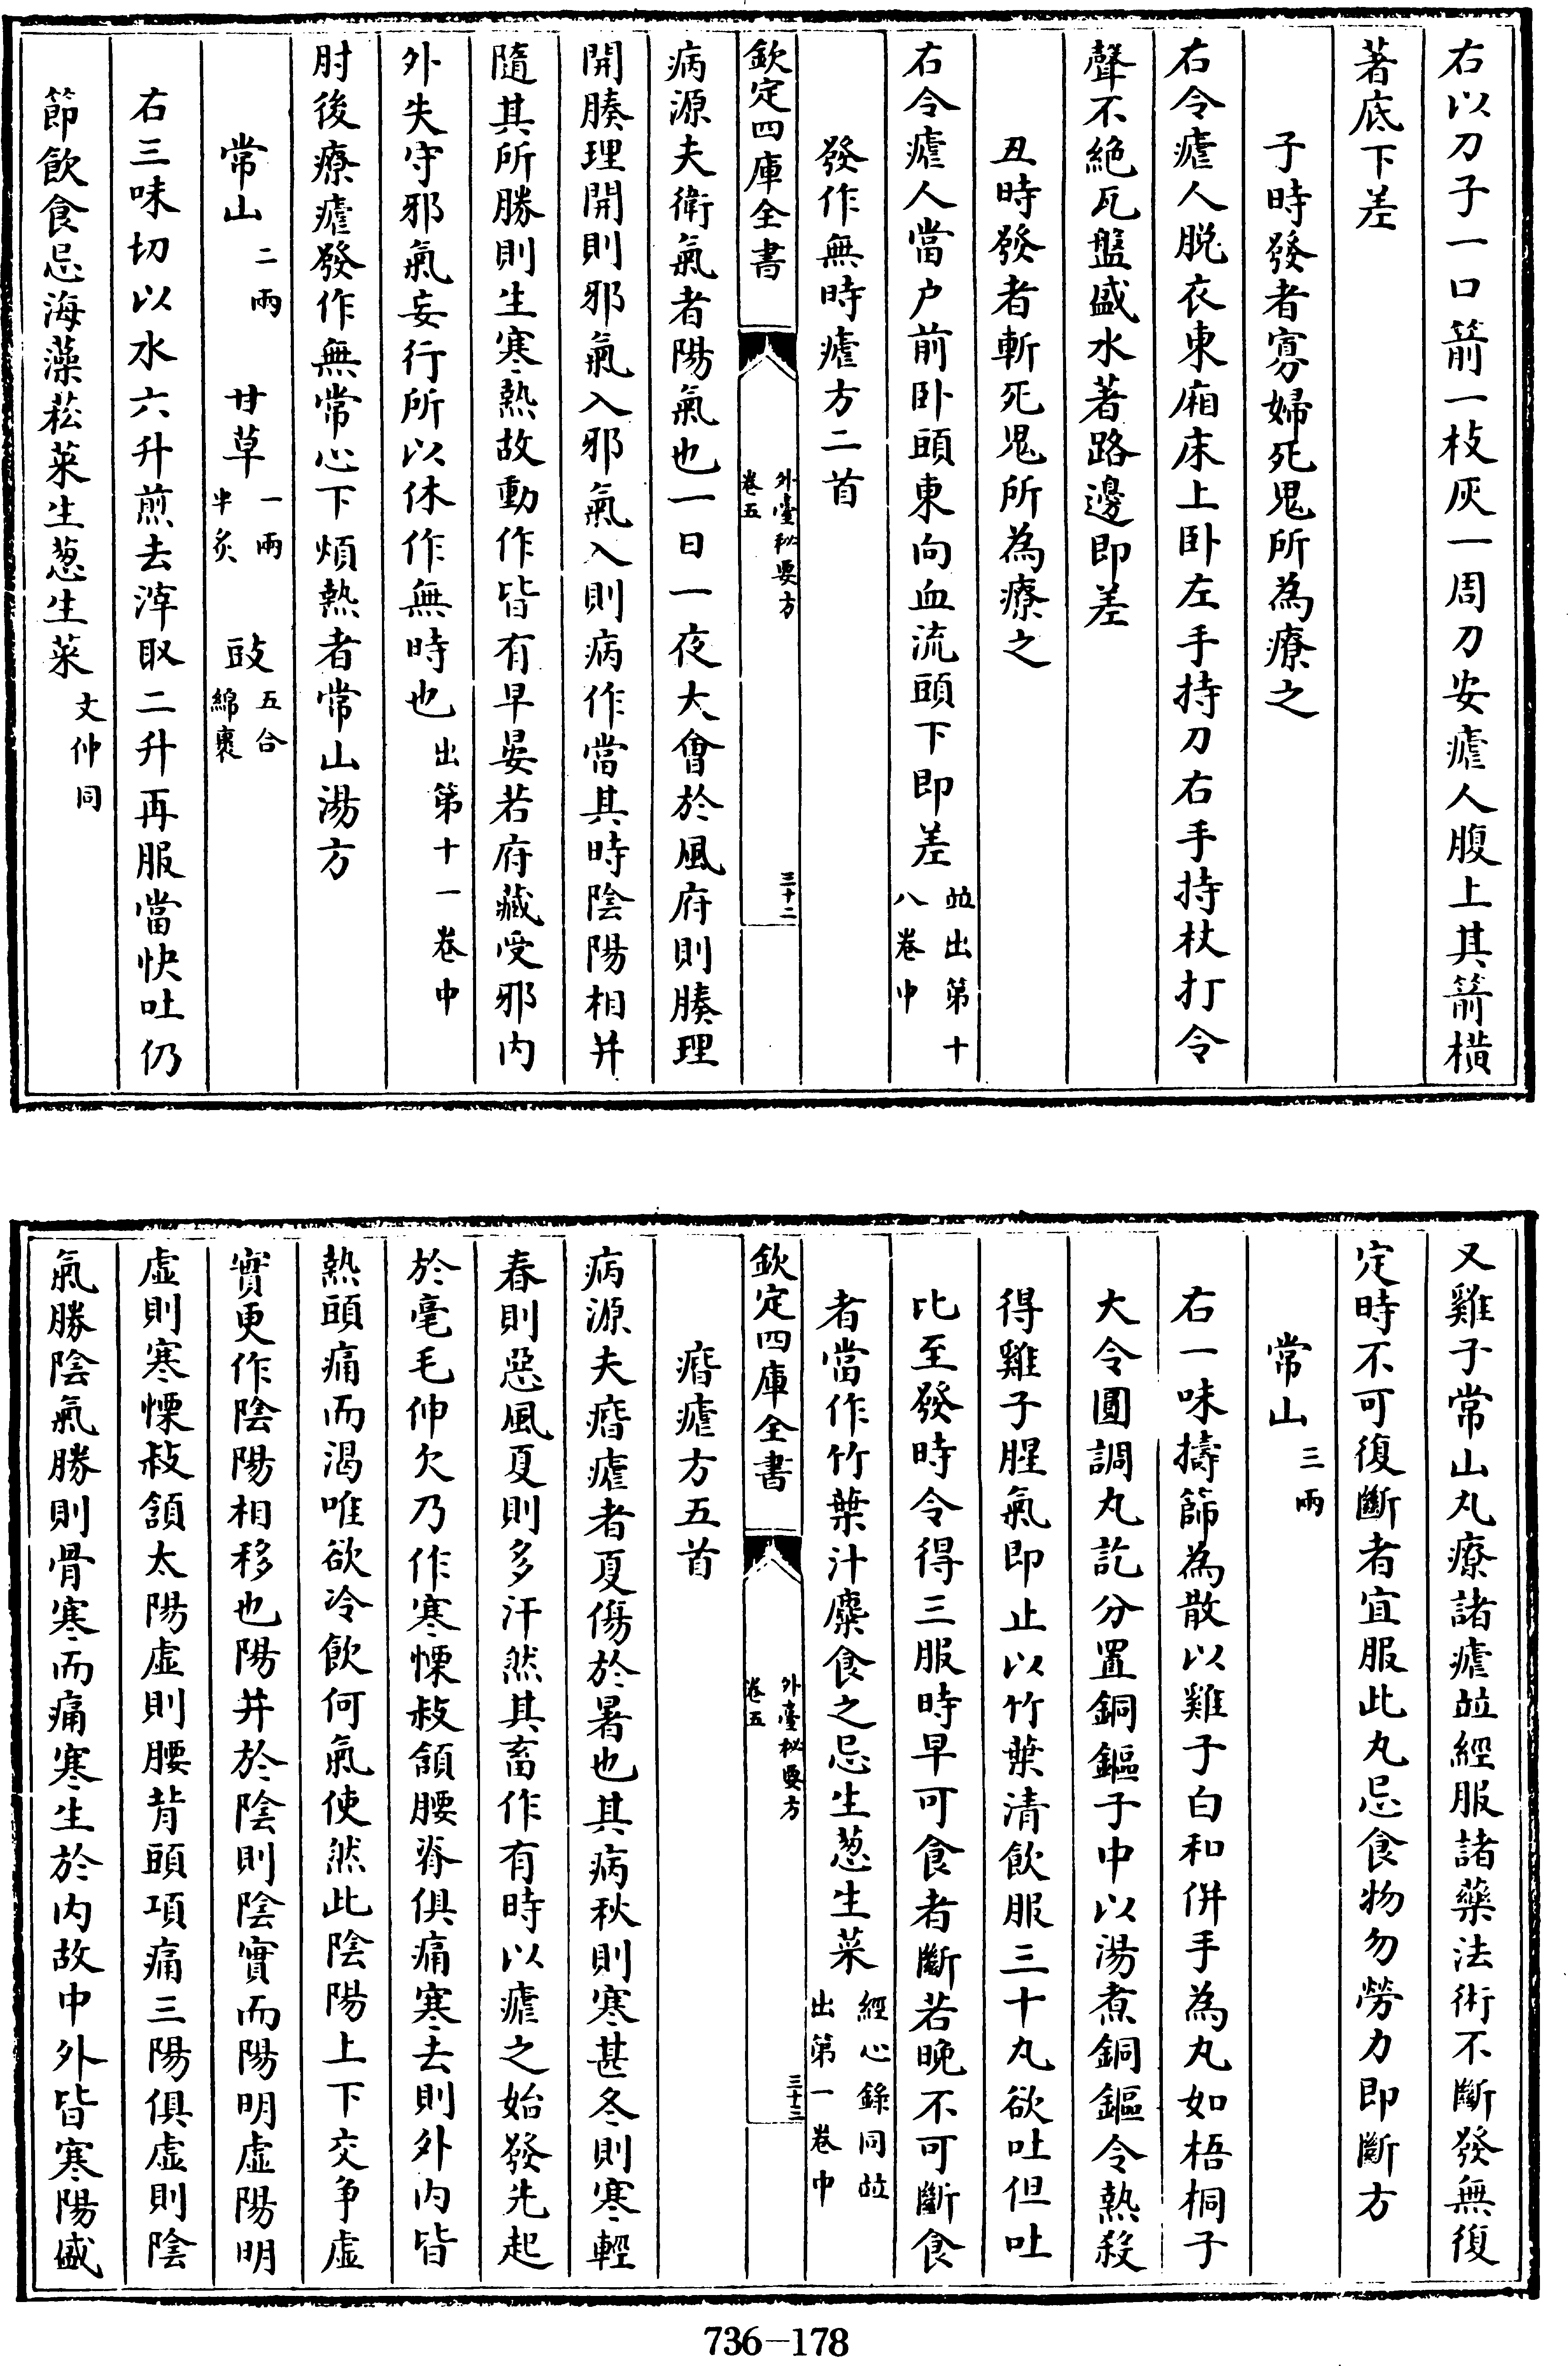 右以刀子一口箭一枝灰一周刀安瘧人腹上其箭橫
著底下差
子時發者寡婦死鬼所為療之
右令瘧人脱衣東廂床上卧左手持刀右手持杖打令
聲不絶瓦盤盛水著路邊即差
丑時發者斬死鬼所為療之
右令瘧人當户前卧頭東向血流頭下即差並出第十
八卷中
發作無時瘧方二首
欽定四庫全書
外臺秘要方
卷五
三十二
病源夫衛氣者陽氣也一日一夜大㑹於風府則腠理
開腠理開則邪氣入邪氣入則病作當其時陰陽相并
隨其所勝則生寒熱故動作皆有早晏若府藏受邪内
外失守邪氣妄行所以休作無時也出第十一卷中
肘後療瘧發作無常心下煩熱者常山湯方
常山二兩 甘草一兩半炙 豉五合綿裹
右三味切以水六升煎去滓取二升再服當快吐仍
節飲食忌海藻菘菜生葱生菜文仲同
又雞子常山丸療諸瘧並經服諸藥法術不斷發無復
定時不可復斷者宜服此丸忌食物勿勞力即斷方
常山三兩
右一味擣篩為散以雞子白和併手為丸如梧桐子
大令圓調丸訖分置銅鏂子中以湯煮銅鏂令熱殺
得雞子腥氣即止以竹葉清飲服三十丸欲吐但吐
比至發時令得三服時早可食者斷若晚不可斷食
者當作竹葉汁糜食之忌生葱生菜經心録同並
出第一卷中
欽定四庫全書
外臺秘要方
卷五
三十三
痎瘧方五首
病源夫痎瘧者夏傷於暑也其病秋則寒甚冬則寒輕
春則惡風夏則多汗然其畜作有時以瘧之始發先起
於毫毛伸欠乃作寒慄鼓頷腰脊俱痛寒去則外内皆
熱頭痛而渴唯欲冷飲何氣使然此陰陽上下交争虚
實更作陰陽相移也陽并於陰則陰實而陽明虚陽明
虚則寒慄鼓頷太陽虚則腰背頭項痛三陽俱虚則陰
氣勝陰氣勝則骨寒而痛寒生於内故中外皆寒陽盛
736-178